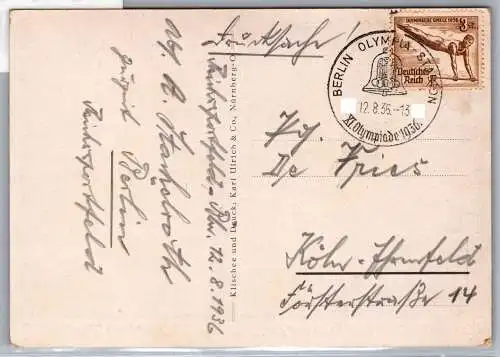 Drucksache!
OLYMPISCHE SPIELE 1936
Deutsches
Reich
BERLIN OLYMPIA-STADION
12.8.36.-13
XI. Olympiade 1936.
Fries
Köln-Ehrenfeld
Försterstraße 14
Klischee und Druck: Karl Ulrich & Co., Nürnberg-O
Reichssportfeld, 12.8.1936
Abs. A.
zurzeit Berlin
Reichssportfeld